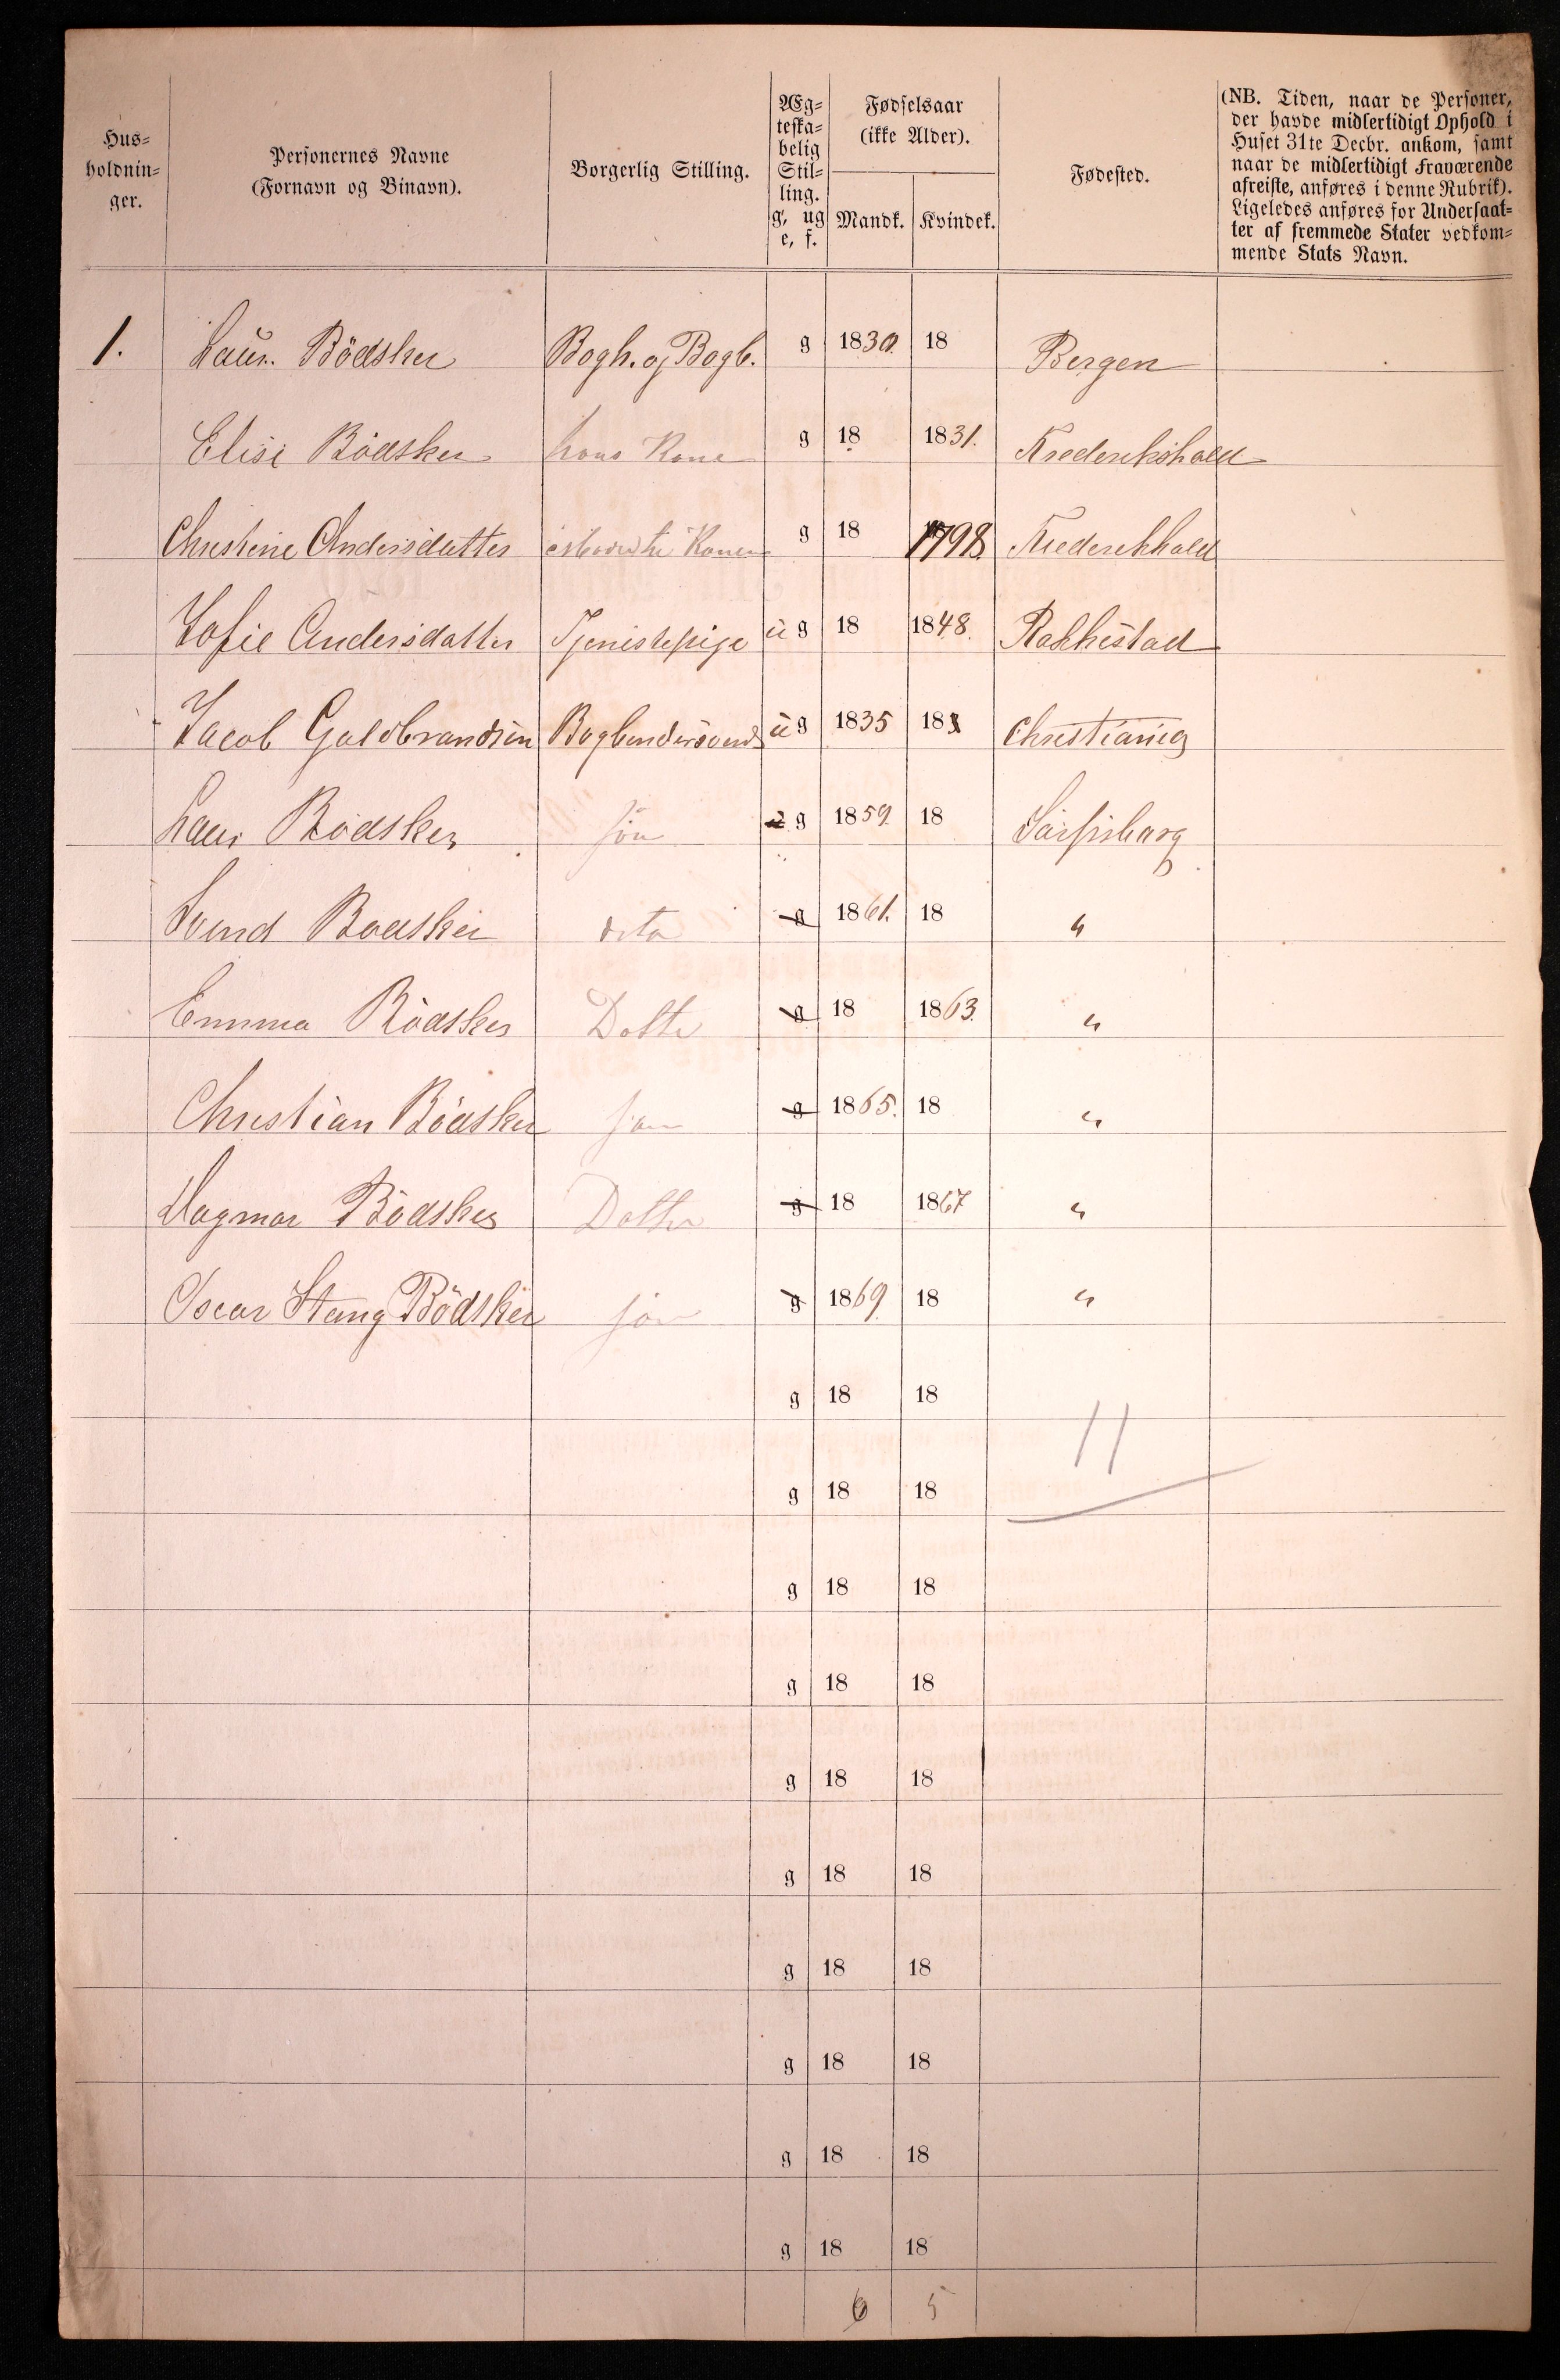 Hus-
holdnin-
ger.
Personernes Navne
(Fornavn og Binavn).
Borgerlig Stilling.
Æg-
teska-
belig
Stil-
ling.
g, ug
e, f.
Fødselsaar
(ikke Alder).
Mandk. Kvindek.
Fødested.
(NB. Tiden, naar de Personer,
der havde midlertidigt Ophold i
Huset 31te Decbr. ankom, samt
naar de midlertidigt Fraværende
afreiste, anføres i denne Rubrik).
Ligeledes anføres for Undersaat-
ter af fremmede Stater vedkom-
mende Stats Navn.
1. Laur. Bödsker Bogh. og Bogb. g 1830. 18 Bergen
Elise Bödsker hans Kone g 18 1831. Frederikshald
Christine Andersdatter Konen g 18 1798. Frederikhald
Sofie Andersdatter Tjenistepige ug 18 1848. Rakkestad
Jacob Guldbrandsen Bogbindersvend ug 1835 18 Christiania
Laur Bödsker sön g 1859. 18 Sarpsborg
Svend Bödsker dito g 1861. 18 "
Emma Bödsker Datter g 18 1863. "
Christian Bödsker sön g 1865. 18 "
Dagmar Bödsker Datter g 18 1867 "
Oscar Stang Bödsker sön g 1869. 18 "
g 18 18
11
g 18 18
g 18 18
g 18 18
g 18 18
g 18 18
g 18 18
g 18 18
g 18 18
g 18 18
6 5